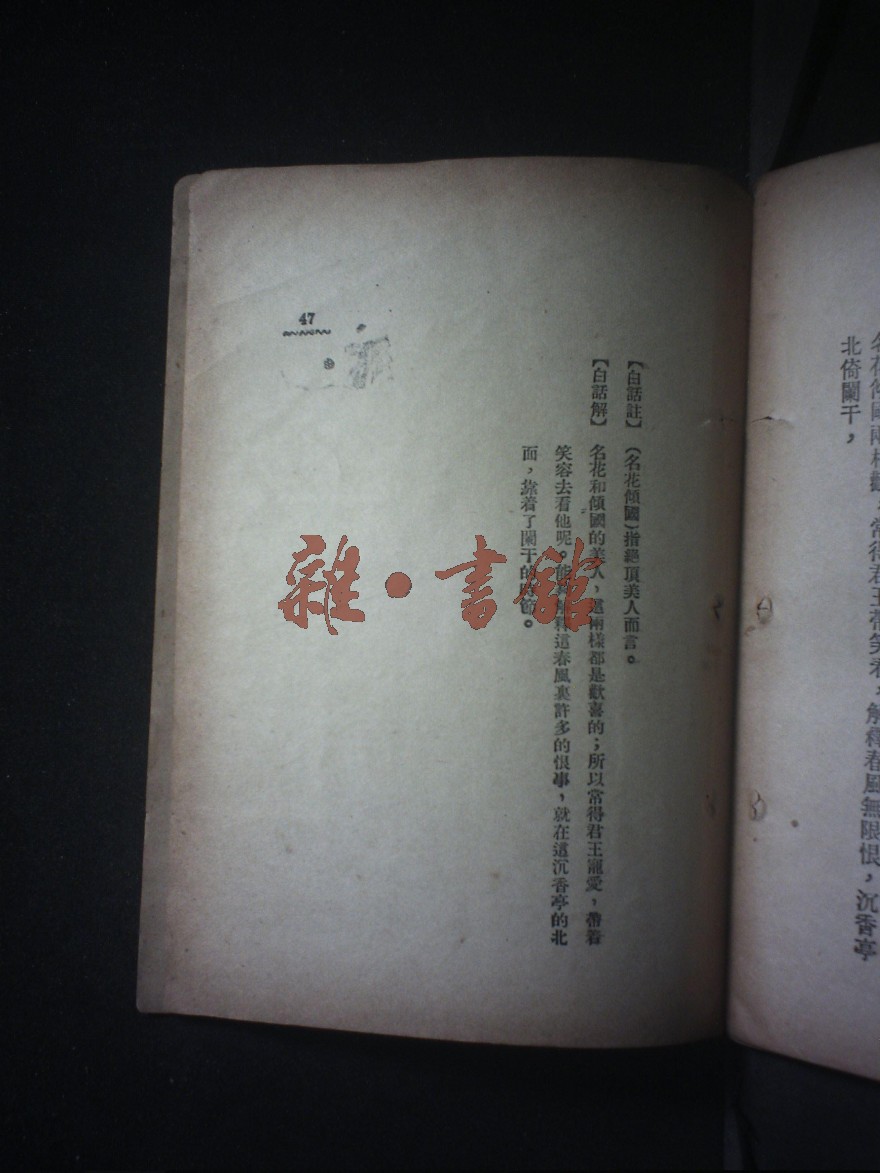 名花傾國兩相歡，常得君王帶笑看，解釋春風無限恨，沉香亭
北倚闌干，
【白話註】（名花傾國）指絕頂美人而言。
【白話解】名花和傾國的美人，這兩樣都是歡喜的；所以常得君王寵愛，帶着
笑容去看他呢。能釋這春風裏許多的恨事，就在這沉香亭的北
面，靠着了闌干的時節。
47
雜·書館